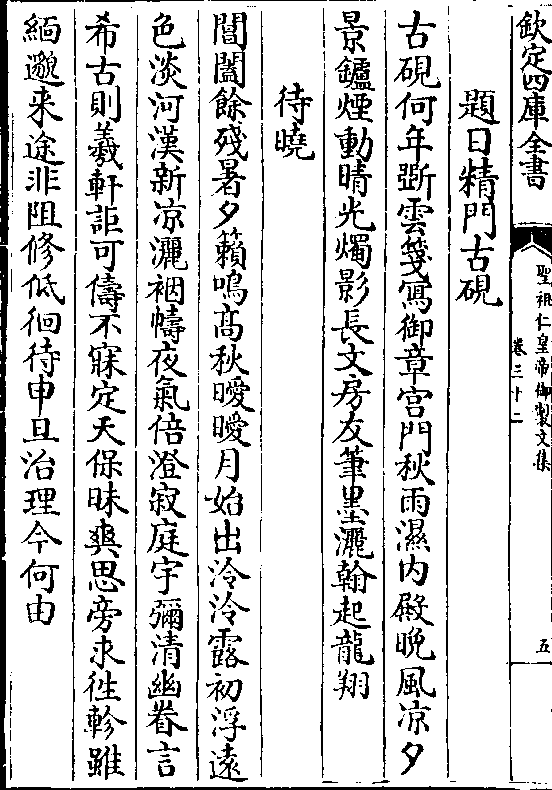 欽定四庫全書
聖祖仁皇帝御製文集
卷三十二
五
題日精門古硯
古硯何年斲雲箋寫御章宫門秋雨濕内殿晚風凉夕
景鑪煙動晴光燭影長文房友筆墨灑翰起龍翔
待曉
閶闔餘殘暑夕籟鳴髙秋曖曖月始出泠泠露初浮遠
色淡河漢新凉灑裀幬夜氣倍澄寂庭宇彌清幽眷言
希古則羲軒詎可儔不寐定天保昧爽思旁求徃軫雖
緬邈来途非阻修低徊待申旦治理今何由